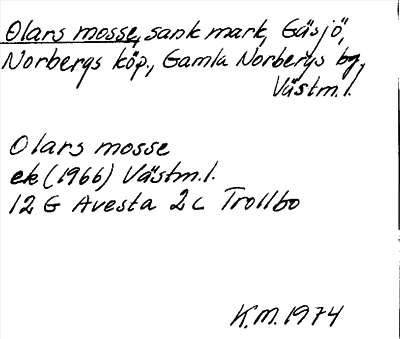 Olars mosse, sank mark, Gäsjö,
Norbergs köp., Gamla Norbergs bg,
Västm.l.
Olars mosse
ek (1966) Västm.l.
12 G Avesta 2 c Trollbo
K.M. 1974